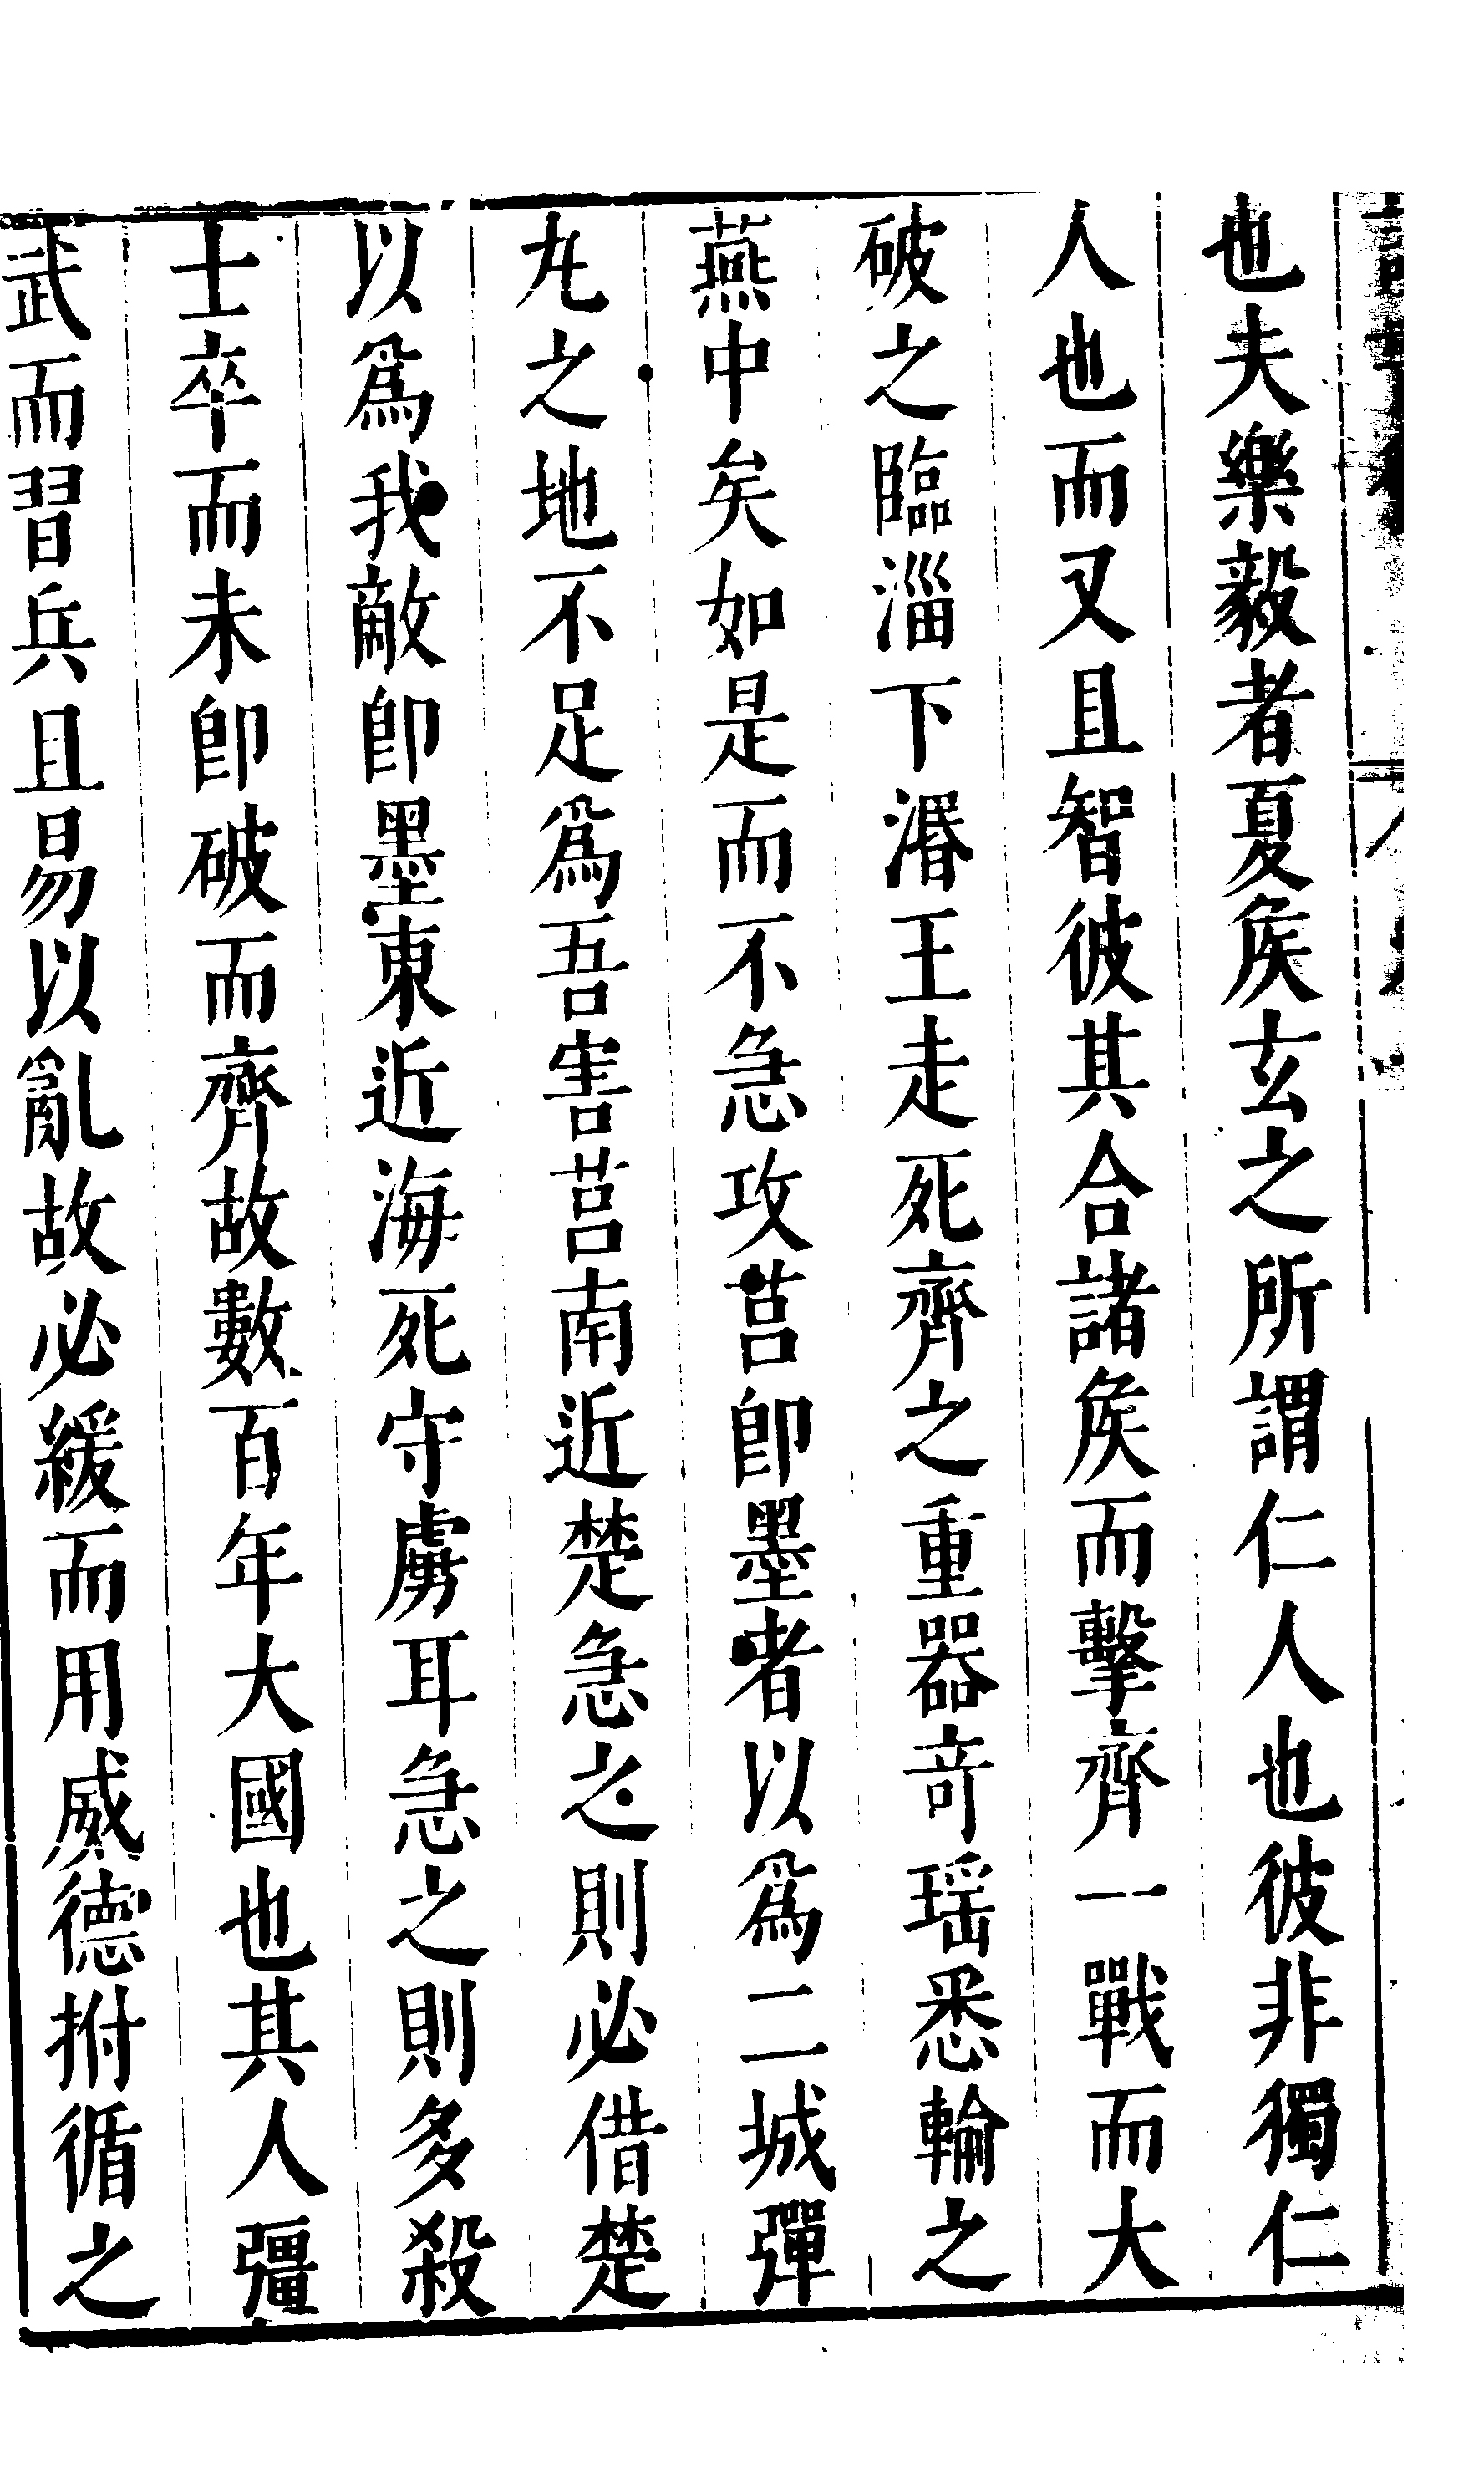 也夫樂毅者夏矦玄之所謂仁人也彼非獨仁
人也而又且智彼其合諸矦而擊齊一戰而大
破之臨淄下湣王走死齊之重器竒瑶悉輸之
燕中矣如是而不急攻莒卽墨者以爲二城彈
丸之地不足爲吾害莒南近楚急之則必借楚
以爲我敵卽墨東近海死守虜耳急之則多殺
士卒而未卽破而齊故數百年大國也其人彊
武而習兵且易以亂故必緩而用威德拊循之